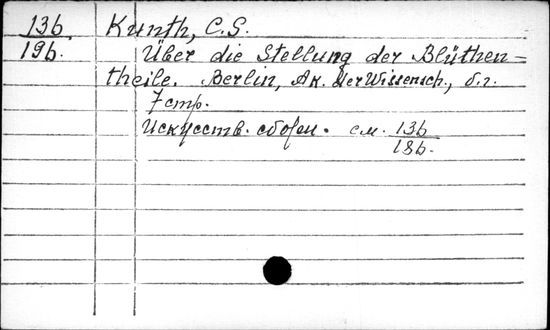 13б Kunth, C.S.
19б. Über die Stellung der Blüthen=
theile. Berlin, Ак. der Wissensch., б.г.
7 стр.
Искусств. сборн. см. 13б
18б.